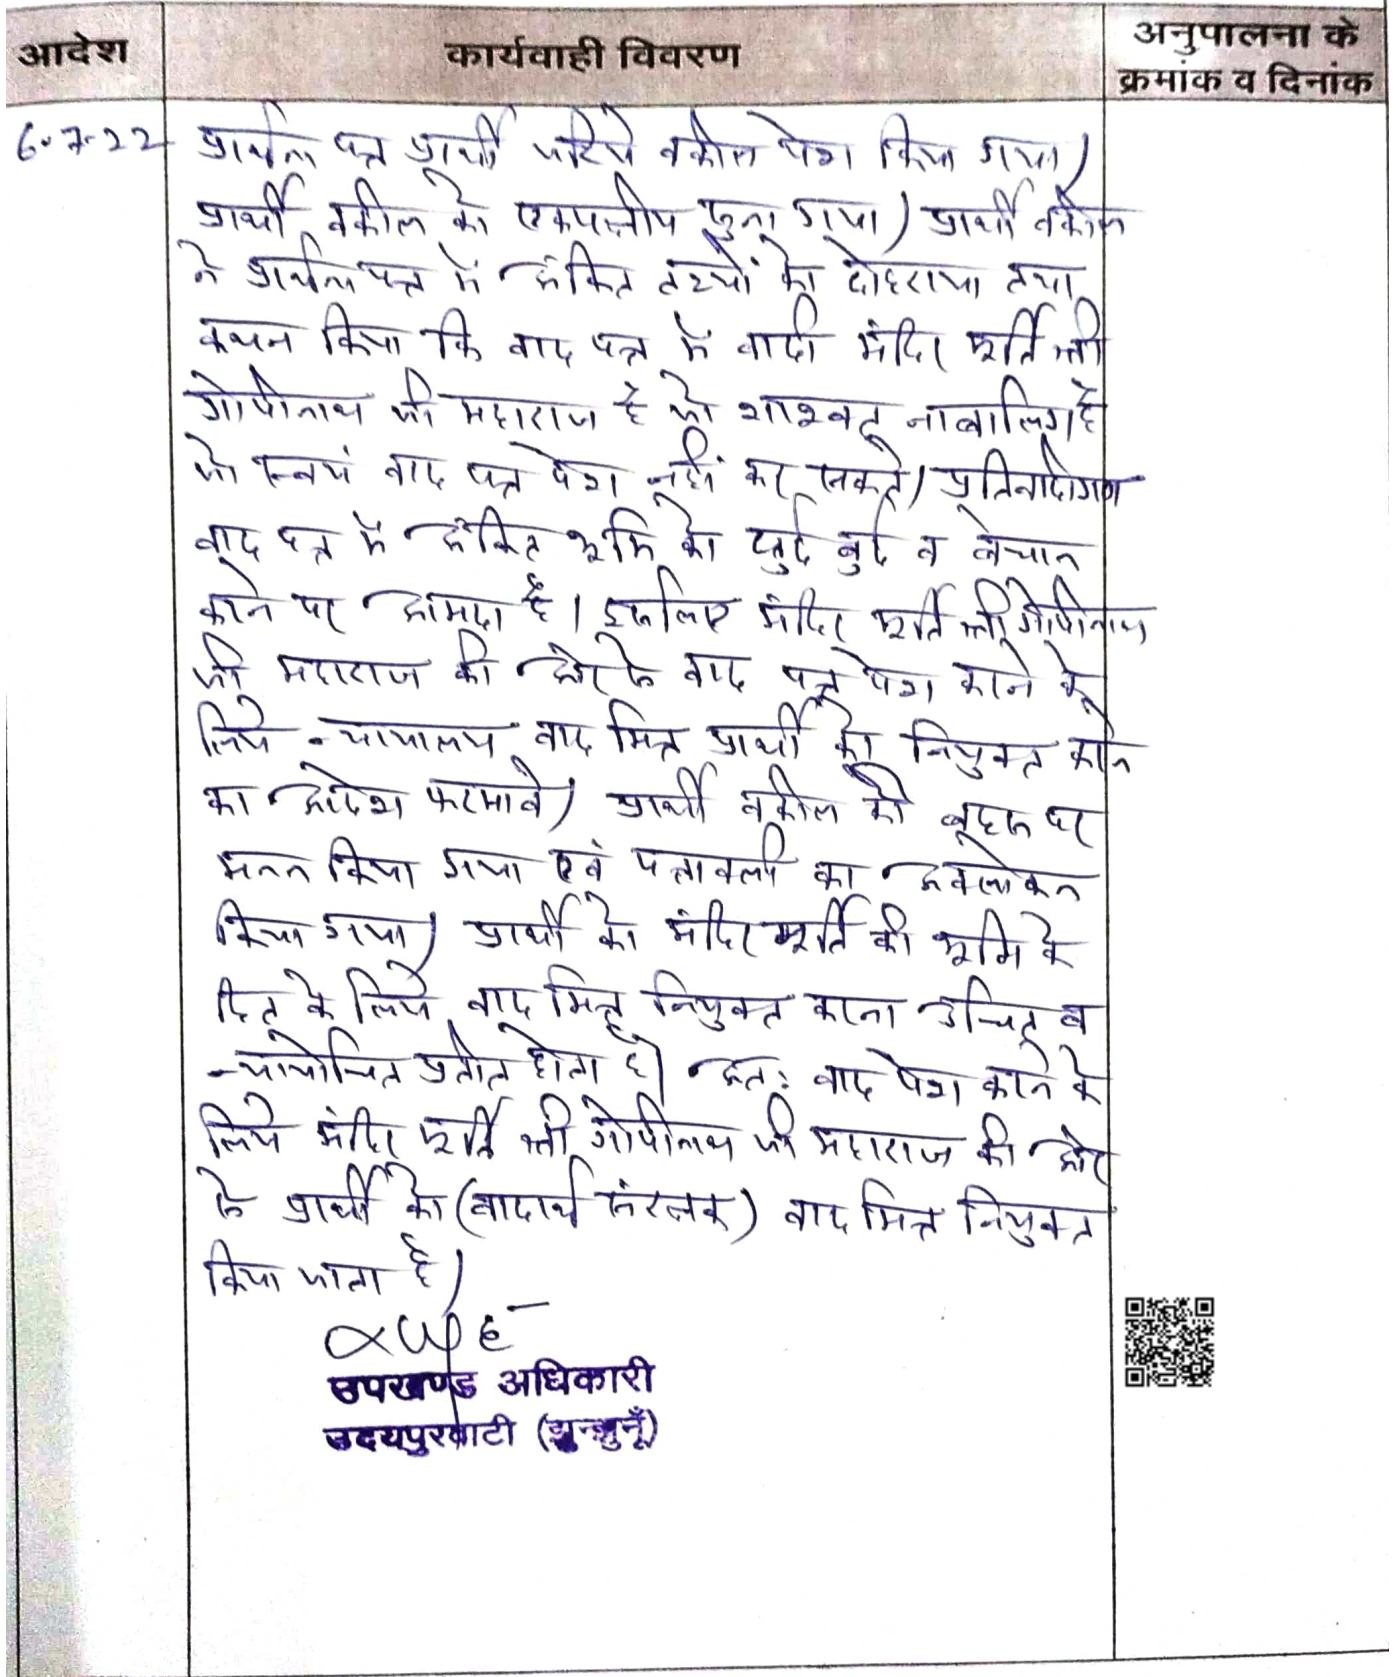 आदेश
कार्यवाही विवरण
अनुपालना के
क्रमांक व दिनांक
6-7-22
प्रार्थना पत्र प्रार्थी जरिये वकील पेश किया गया।
प्रार्थी वकील को एकपक्षीय सुना गया। प्रार्थी वकील
ने प्रार्थना पत्र में अंकित तथ्यों को दोहराया तथा
कथन किया कि वाद पत्र में वादी मंदिर मूर्ति श्री
गोपीनाथ जी महाराज है जो शाश्वत नाबालिग है
जो स्वयं वाद पत्र पेश नहीं कर सकते। प्रतिवादीगण
वाद पत्र में अंकित भूमि को खुर्द बुर्द व बेचान
करने पर आमदा है। इसलिए मंदिर मूर्ति श्री गोपीनाथ
जी महाराज की ओर से वाद पत्र पेश करने के
लिये न्यायालय वाद मित्र प्रार्थी को नियुक्त करने
का आदेश फरमावे। प्रार्थी वकील की बहस पर
मनन किया गया एवं पत्रावली का अवलोकन
किया गया। प्रार्थी को मंदिर मूर्ति की भूमि के
हित के लिये वाद मित्र नियुक्त करना उचित व
न्यायोचित प्रतीत होता है। अतः वाद पेश करने के
लिये मंदिर मूर्ति श्री गोपीनाथ जी महाराज की ओर
से प्रार्थी को (वादार्थ संरक्षक) वाद मित्र नियुक्त
किया जाता है।
उपखण्ड अधिकारी
उदयपुरवाटी (झुन्झुनूँ)